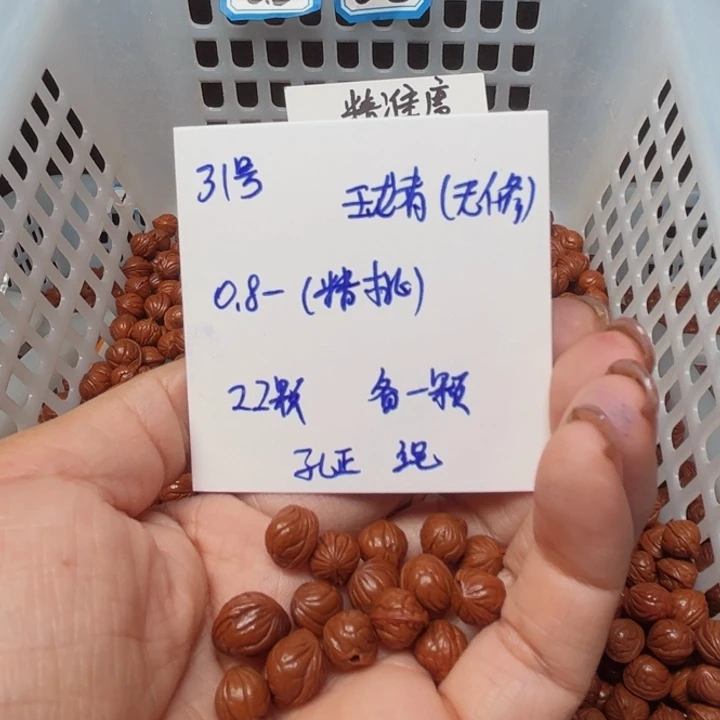 精准度
31号 玉龙青(无修)
0.8-(精挑)
22颗 备一颗
孔正